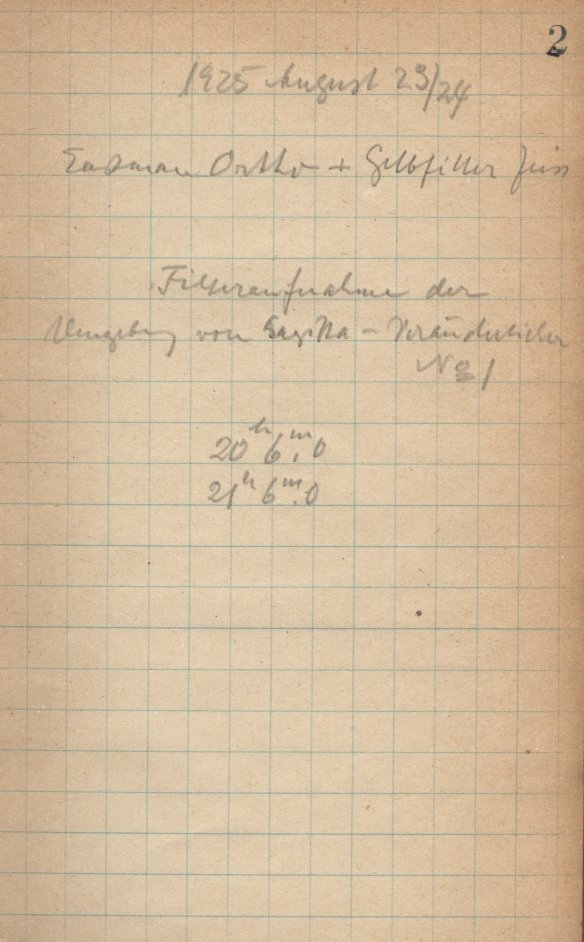 2
1925 August 23/24
Eastman Ortho + Gelbfilter Zeiss
Filteraufnahme der
Umgebung von Sagitta - Veränderlicher
No 1
20h 6m,0
21h 6m.0